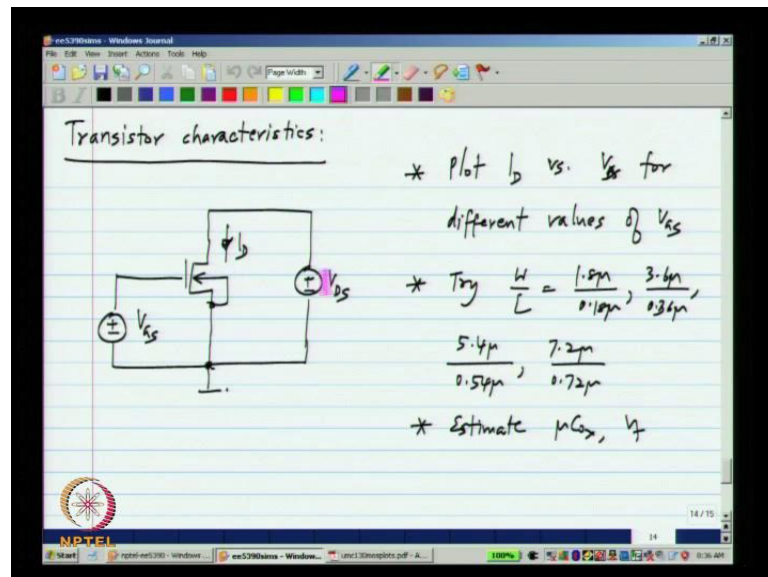 ee5390sims - Windows Journal
File Edit View Insert Actions Tools Help
Page Width
Transistor characteristics:
* Plot I_D vs. V_DS for
different values of V_GS
* Try W/L = 1.8µ/0.18µ, 3.6µ/0.36µ,
5.4µ/0.54µ, 7.2µ/0.72µ
* Estimate µCox, V_T
I_D
V_DS
V_GS
NPTEL
14 / 15
14
Start
nptel-ee5390 - Windows ...
ee5390sims - Window...
umc130nmosplots.pdf - A...
100%
8:36 AM